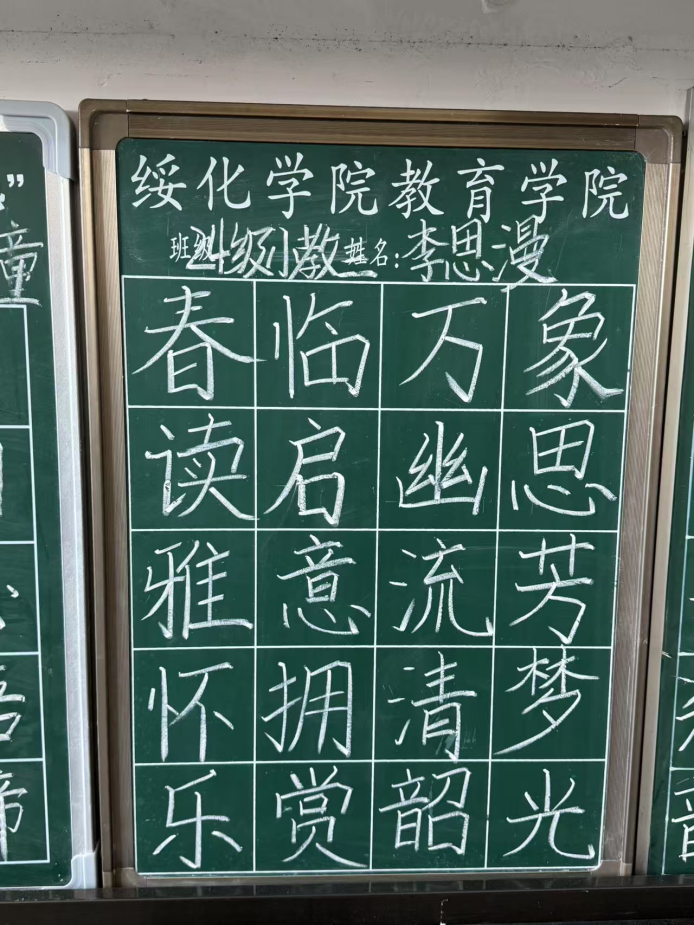 绥化学院教育学院
班级24级小教二 姓名:李思漫
春临万象
读启幽思
雅意流芳
怀拥清梦
乐赏韶光
童